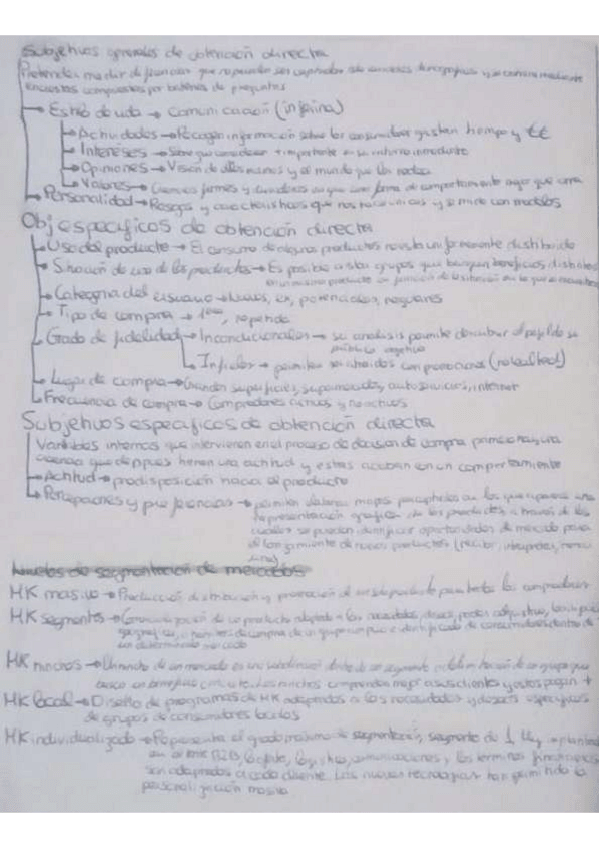 Subjetivos generales de obtención directa
Pretenden medir diferencias que no pueden ser capturadas mediante
encuestas compuestas por baterías de preguntas
Estilo de vida → Comunicación
Actividades → Recogen información sobre los consumidores gastan tiempo y €€
Intereses → Sobre que consideran + importante en su entorno inmediato
Opiniones → Visión de ellos mismos y el mundo que les rodea
Valores → Creencias firmes y duraderas en que una forma de comportamiento mejor que otra
Personalidad → Rasgos y características que nos hace únicos y se mide con modelos
Obj especificos de obtención directa
Uso del producto → El consumo de algunos productos no esta uniformemente distribuido
Situación de uso de los productos → Es posible aislar grupos que busquen beneficios distintos
en un mismo producto en función de la situación en la que se encuentren
Categoria del usuario → Nuevos, ex, potenciales, regulares
Tipo de compra → 1era, repetida
Grado de fidelidad → Incondicionales → su analisis permite descubrir el perfil de su
público objetivo
Infieles → pueden ser atraídos con promociones (no lealtad)
Lugar de compra → Grandes superficies, supermercados, autoservicios, internet
Frecuencia de compra → Compradores activos y no activos
Subjetivos especificos de obtención directa
Variables internas que intervienen en el proceso de decision de compra, primero hay una
que después tienen una actitud y estas acaban con un comportamiento
Actitud → predisposición hacia el producto
Percepciones y preferencias → permiten elaborar mapas perceptuales en los que aparece una
representación grafica de los productos, a través de los
cuales se pueden identificar oportunidades de mercado para
el lanzamiento de nuevos productos
Niveles de segmentación de mercados
MK masivo → Producción distribución y promoción de un solo producto para todos los compradores
MK segmentos → Comercialización de un producto adaptado a las necesidades, deseos, poder adquisitivo, localización
geografica, o hábitos de compra de un grupo amplio e identificado de consumidores dentro de
un determinado mercado
MK nichos → Un nicho de un mercado es una subdivisión dentro de un segmento
busca un beneficio comprenden mejor a sus clientes y estos pagan +
MK local → Diseño de programas de MK adaptados a las necesidades y deseos especificos
de grupos de consumidores locales
MK individualizado → Representa el grado máximo de segmentación, segmento de 1
en el MK B2B, logística, comunicaciones, y los terminos financieros
son adaptados a cada cliente. Las nuevas tecnologías han permitido la
personalización masiva